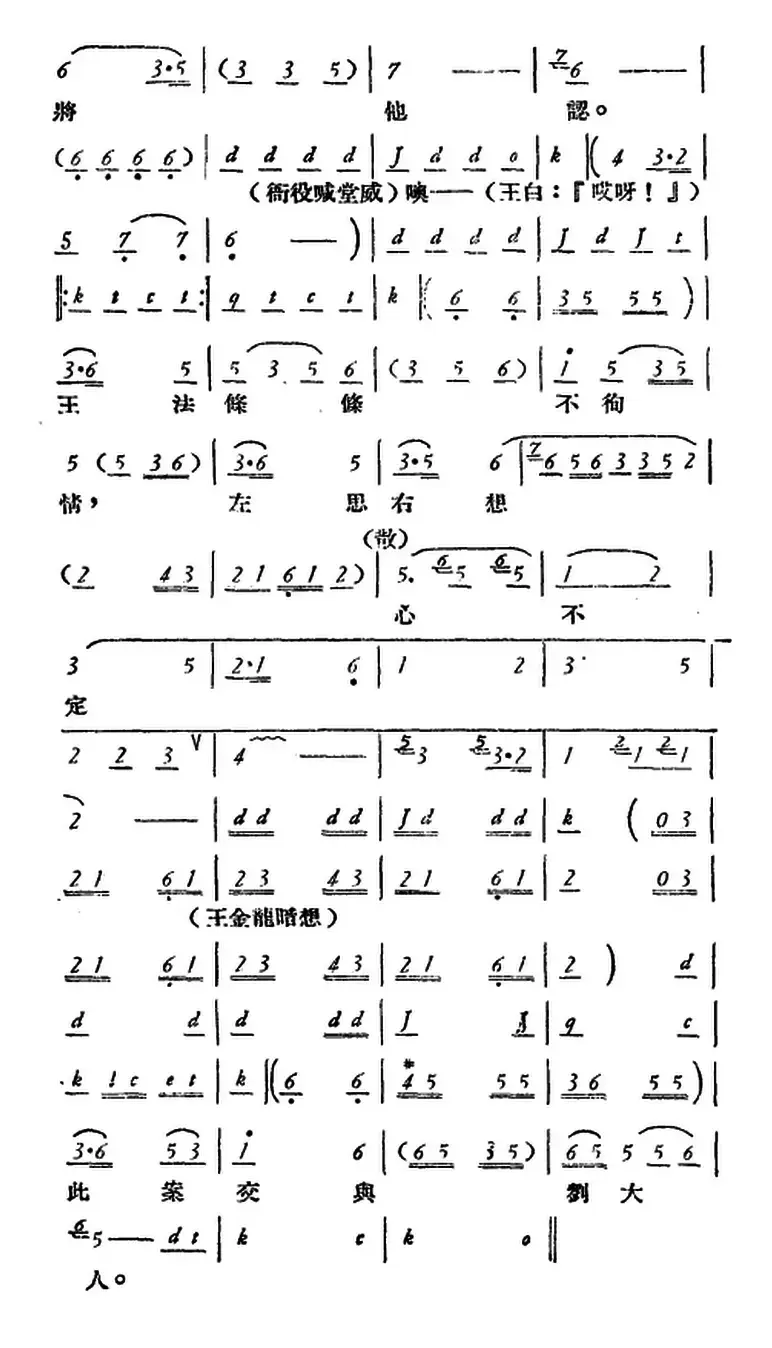 6 3·5 | ( 3 3 5 ) | 7 —— | 7 6 —— |
將 他 認。
( 6 6 6 6 ) | d d d d | J d d o | k |( 4 3·2 |
(衙役喊堂威)噢——(王白:『哎呀!』)
5 7 7 | 6 — ) | d d d d | J d J t |
‖: k t c t :‖ q t c t | k ( 6 6 | 3 5 5 5 ) |
3·6 5 | 5 3 5 6 | ( 3 5 6 ) | i 5 3 5 |
王 法 條 條 不 徇
5 ( 5 3 6 ) | 3·6 5 | 3·5 6 | 7 6 5 6 3 3 5 2 |
情, 左 思 右 想
(散)
( 2 4 3 | 2 1 6 1 2 ) | 5. 6 5 6 5 | 1 2 |
心 不
3 5 | 2·1 6 | 1 2 | 3· 5 |
定
2 2 3 V | 4 —— | 5 3 5 3·2 | 1 2 1 2 1 |
2 —— | d d d d | J d d d | k ( 0 3 |
2 1 6 1 | 2 3 4 3 | 2 1 6 1 | 2 0 3 |
(王金龍暗想)
2 1 6 1 | 2 3 4 3 | 2 1 6 1 | 2 ) d |
d d | d d d | J | q c |
k l c e t | k ‖( 6 6 | #4 5 5 5 | 3 6 5 5 ) |
3·6 5 3 | i 6 | ( 6 5 3 5 ) | 6 5 5 5 6 |
此 案 交 與 劉 大
6 5 — d t | k c | k o ‖
人。